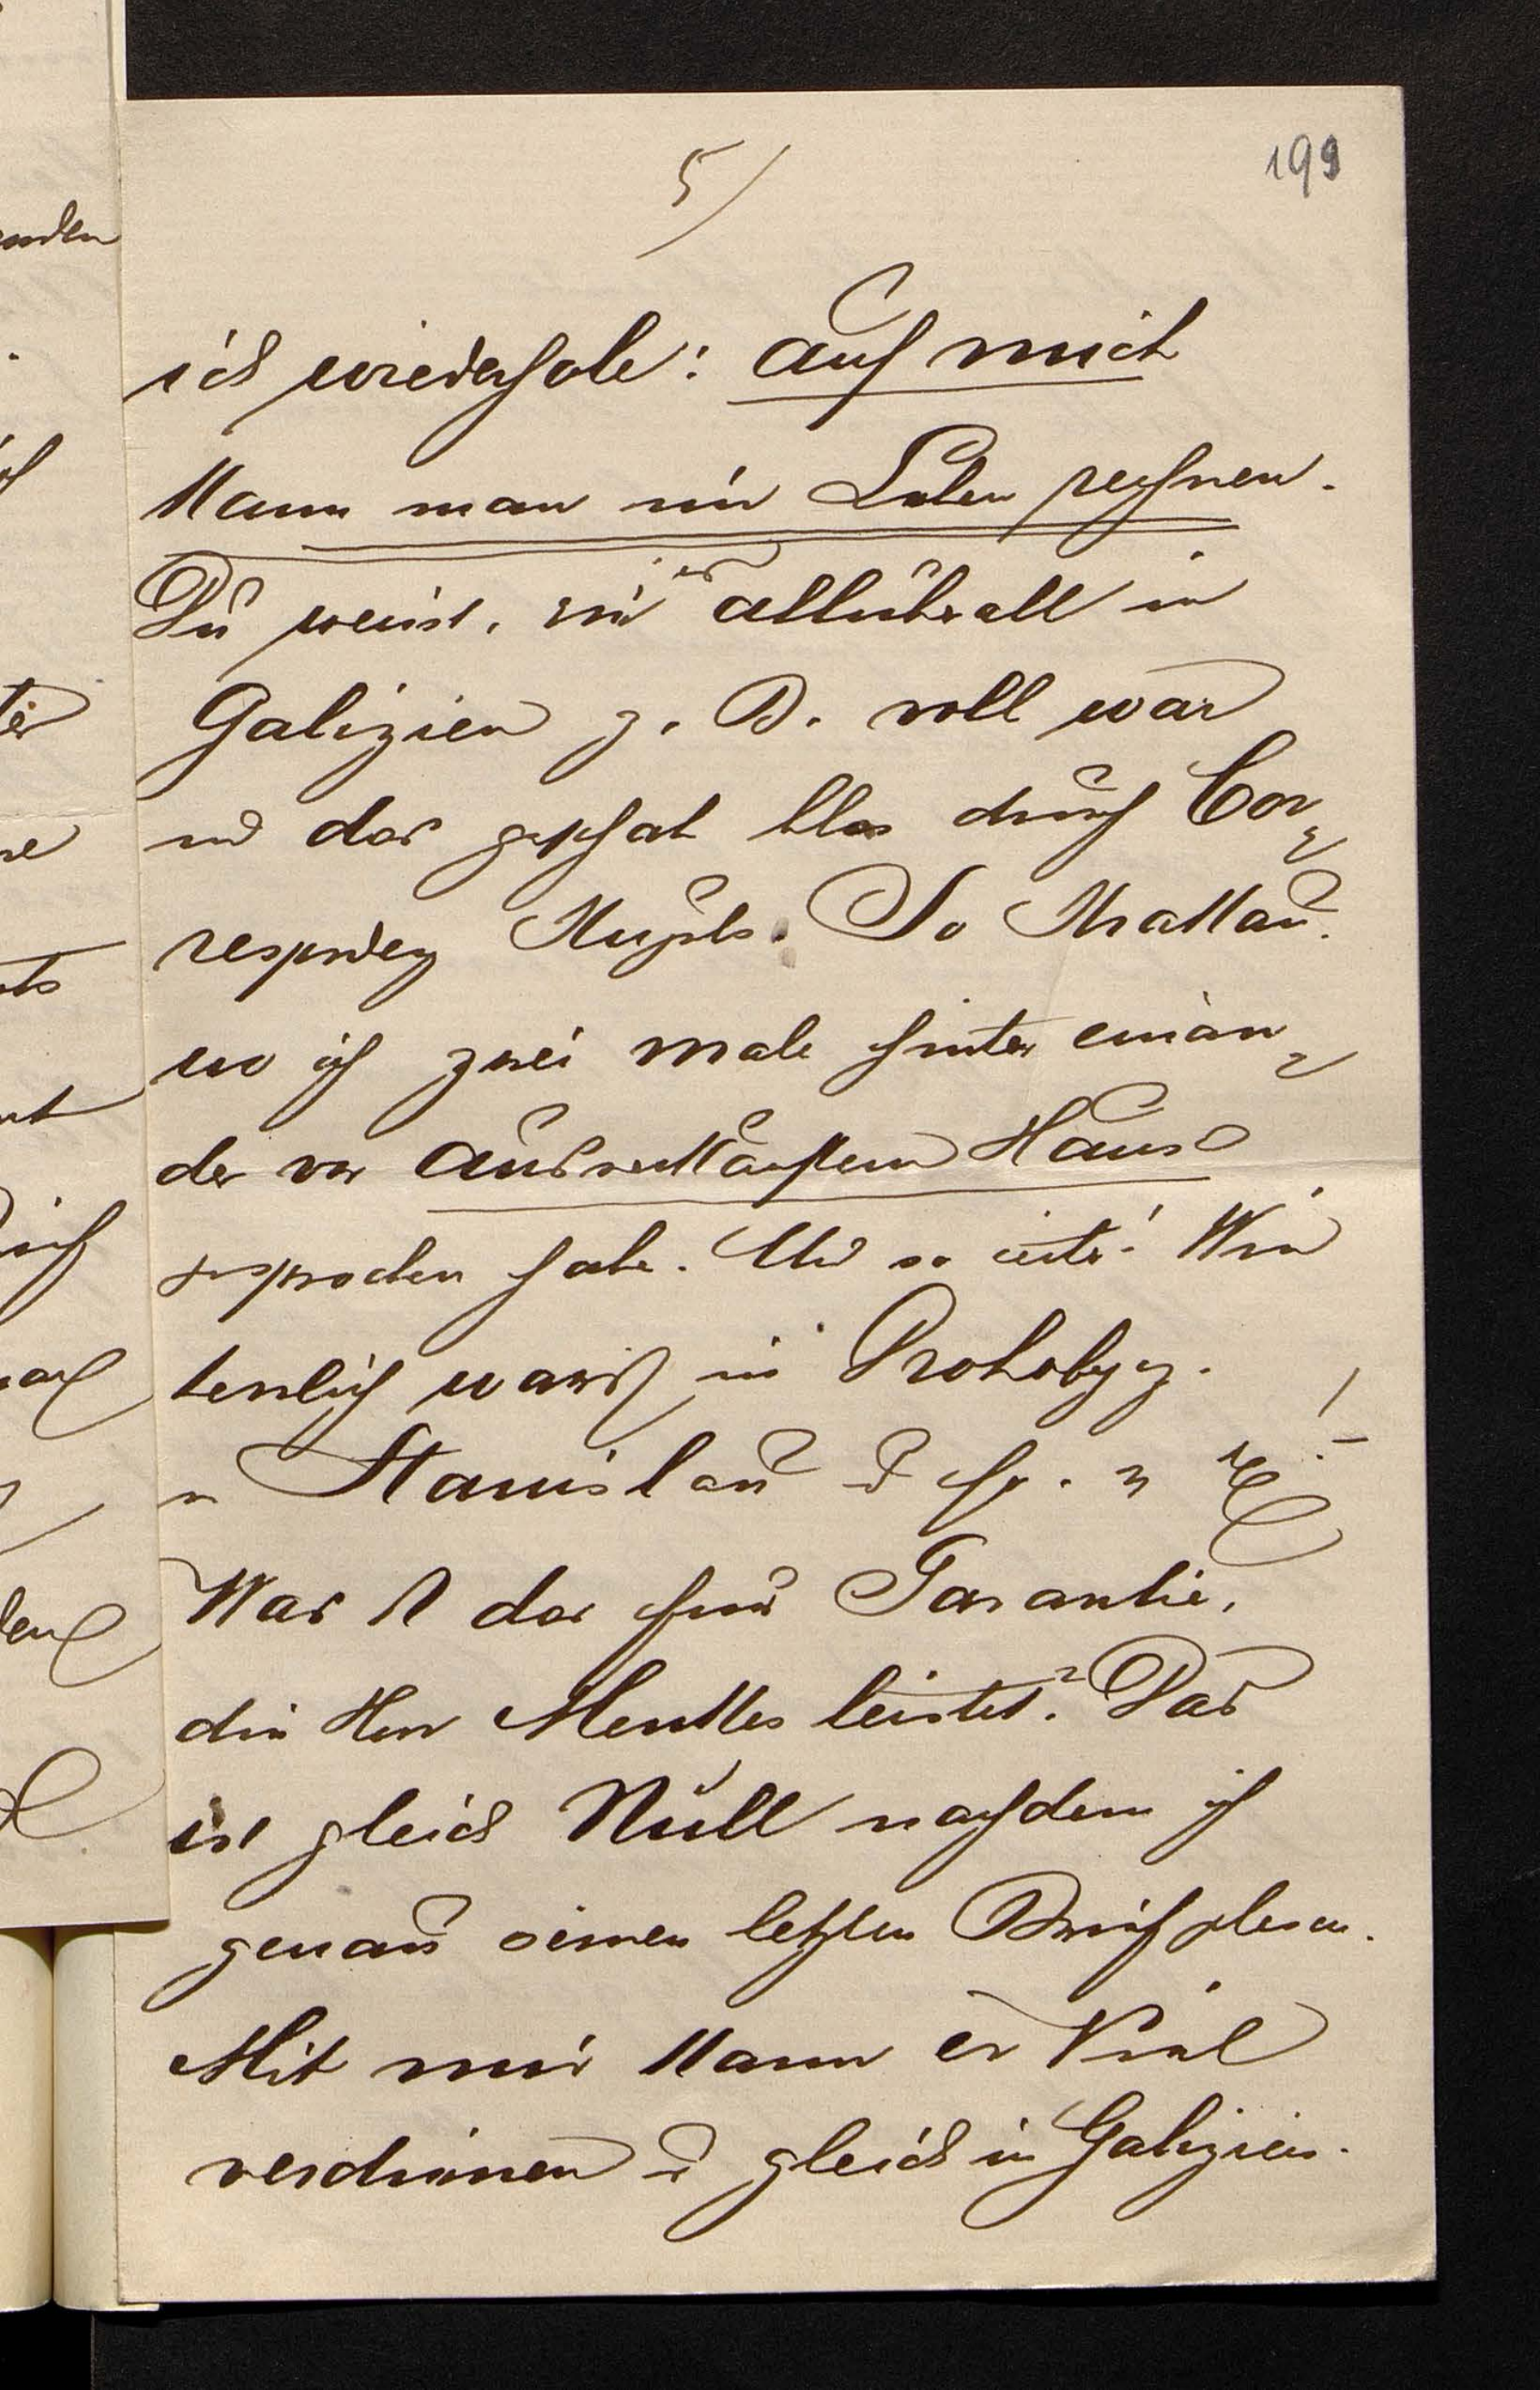 199
5/
ich wiederhole: auf mich
kann man im Leben rechnen.
Du weist, wie es allüberall in
Galizien z. B. voll war
und das geschah blos durch Cor-
respondenz So Krakau.
wo ich zwei male hinter einan-
der vor ausverkauftem Hause
gesprochen habe. Und so weiter! Wie
war's in Drohobycz.
Stanislau u
Was ist das für Garantie,
die Herr Menkes leistet? Das
ist gleich Null nachdem ich
genau seinen letzten Brief gelesen.
Mit mir kann er Viel
verdienen u gleich in Galizien.